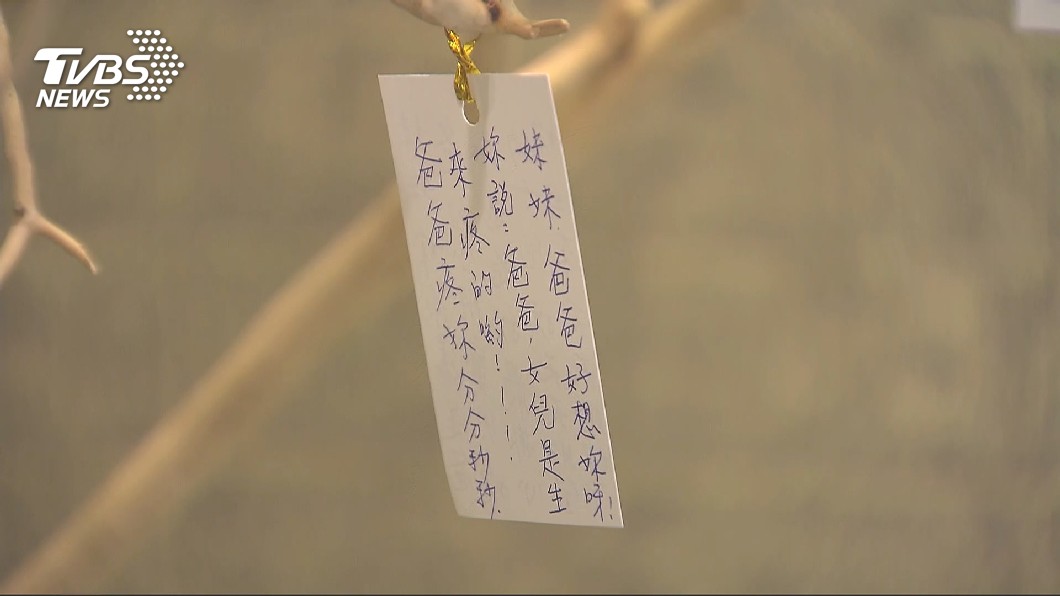 TVBS
NEWS
妹妹.爸爸好想妳呀!
妳說:爸爸,女兒是生
來疼的喲!!!!
爸爸疼妳分分秒秒.